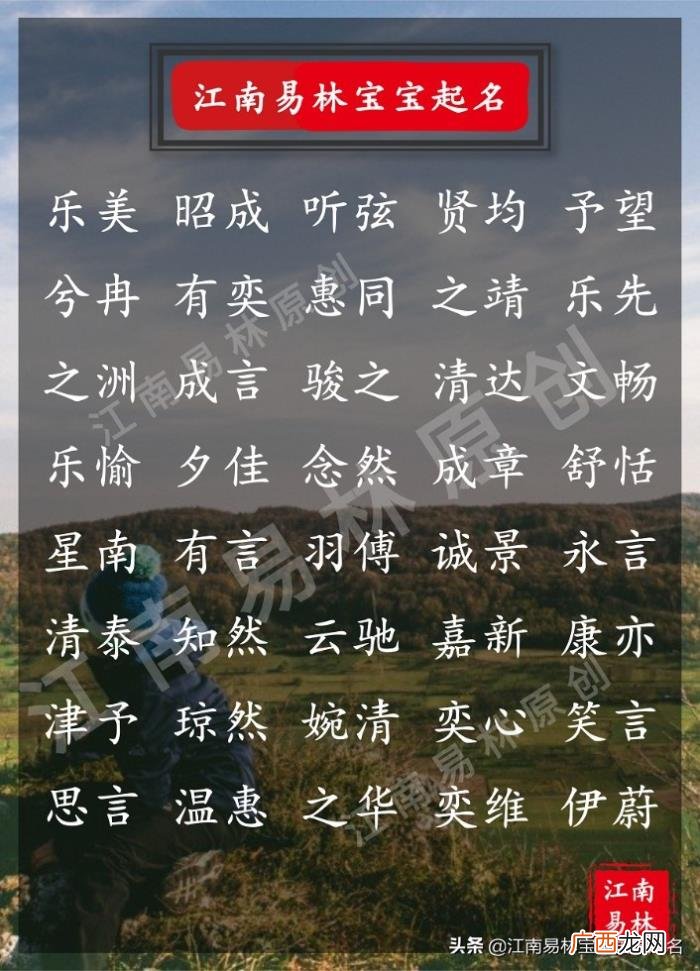 江南易林宝宝起名
乐美 昭成 听弦 贤均 予望
兮冉 有奕 惠同 之靖 乐先
之洲 成言 骏之 清达 文畅
乐愉 夕佳 念然 成章 舒恬
星南 有言 羽傅 诚景 永言
清泰 知然 云驰 嘉新 康亦
津予 琼然 婉清 奕心 笑言
思言 温惠 之华 奕维 伊蔚
江南易林原创
江南易林原创
江南易林原创
江南
易林
头条 @江南易林宝
广西龙网
名